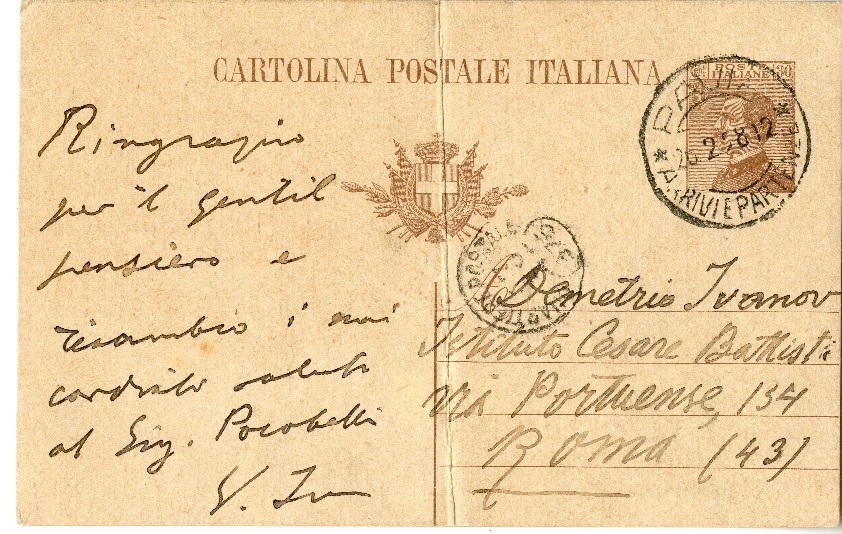 CARTOLINA POSTALE ITALIANA
POSTE
ITALIANE
30
ARRIVI E PARTENZE
Ringrazio
per il gentil
pensiero e
ricambio i miei
cordiali saluti
al Sig. Pocobelli
V. Iv
Demetrio Ivanov
Istituto Cesare Battisti
Via Portuense, 154
Roma (43)